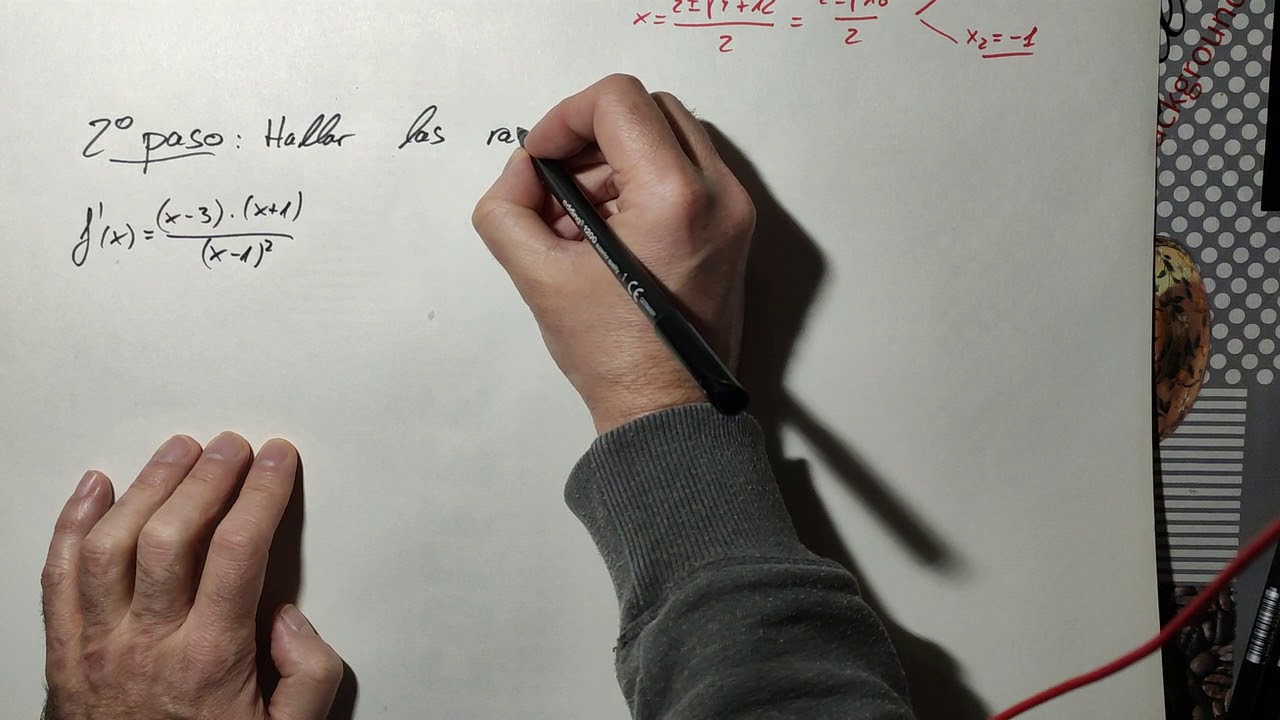 x = 2±√4+12 / 2 = / 2
x₂ = -1
2º paso: Hallar las
f'(x) = (x-3)·(x+1) / (x-1)²
edding 1200
CE
background